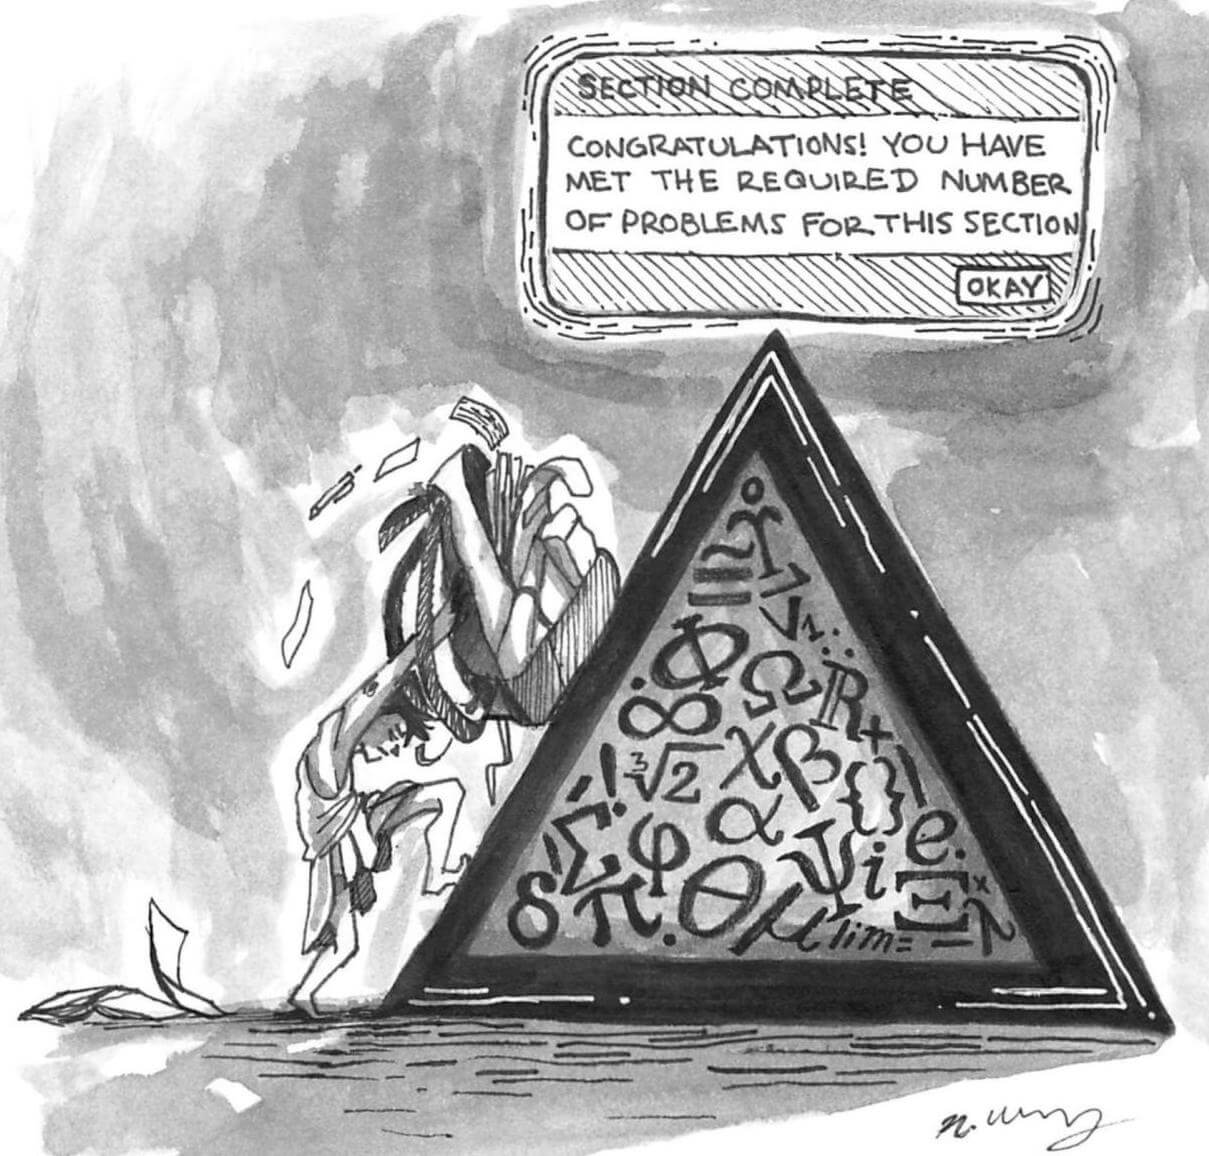 SECTION COMPLETE
CONGRATULATIONS! YOU HAVE
MET THE REQUIRED NUMBER
OF PROBLEMS FOR THIS SECTION
OKAY
≅ ϒ
>
√1
Φ Ω ℝ
∞ +
! ³√2 χ β { } \
Σ φ α ψ i e.
δ π. θ μ lim= Ξ x
− λ